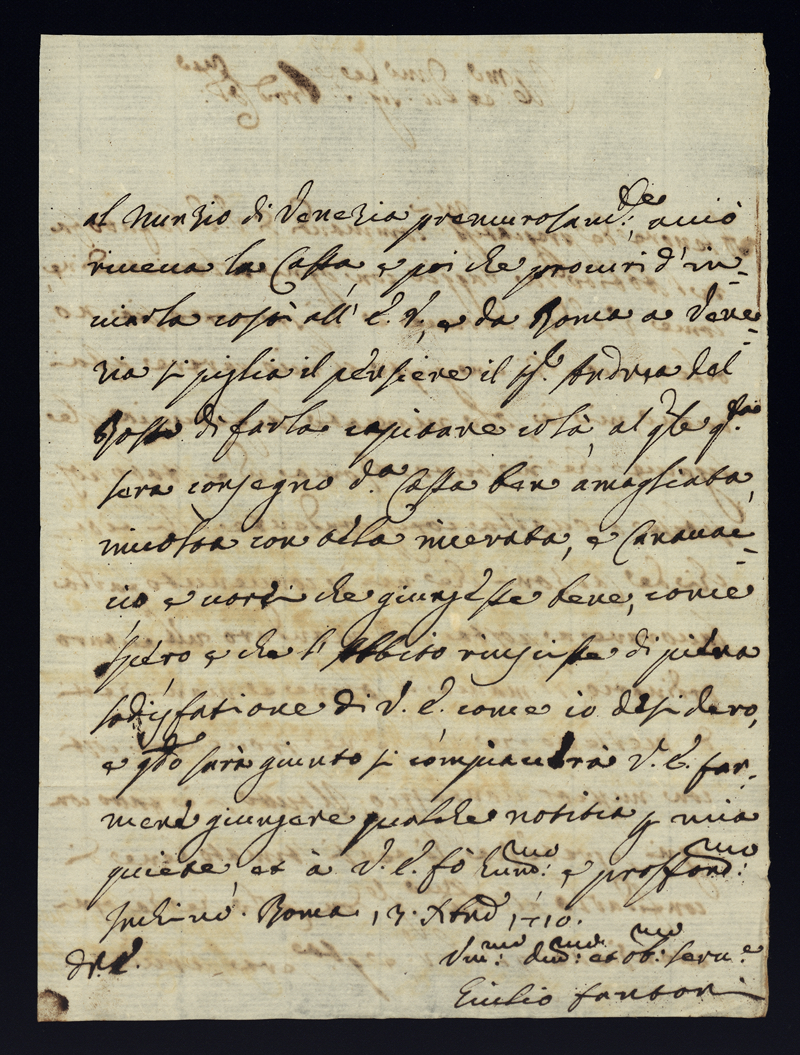 al Nunzio di Venezia premurosam:te, acciò
riceva la Cassa, e poi che procuri d'in=
viarla costì all' V. E., e da Roma a Vene=
zia si piglia il pensiere il Sig.r Andrea del
Rosso di farla capitare colà, al q.le q.sta
sera consegno d.a Cassa ben amagliata,
involta con cerata, e Canavac=
cio e vorei che giungesse bene, come
spero, e che l'Abbito riuscisse di piena
sodisfatione di V. E. come io desidero,
e q.do sarà giunto si compiacerà V. E. far=
mene giungere qualche notitia p mia
quiete et à V. E. fò hum:mo e profond:mo
Inchino. Roma 13. Xbre 1710.
Di V. E.
Vm:mo Dev:mo et Ob:mo Serv:e
Giulio